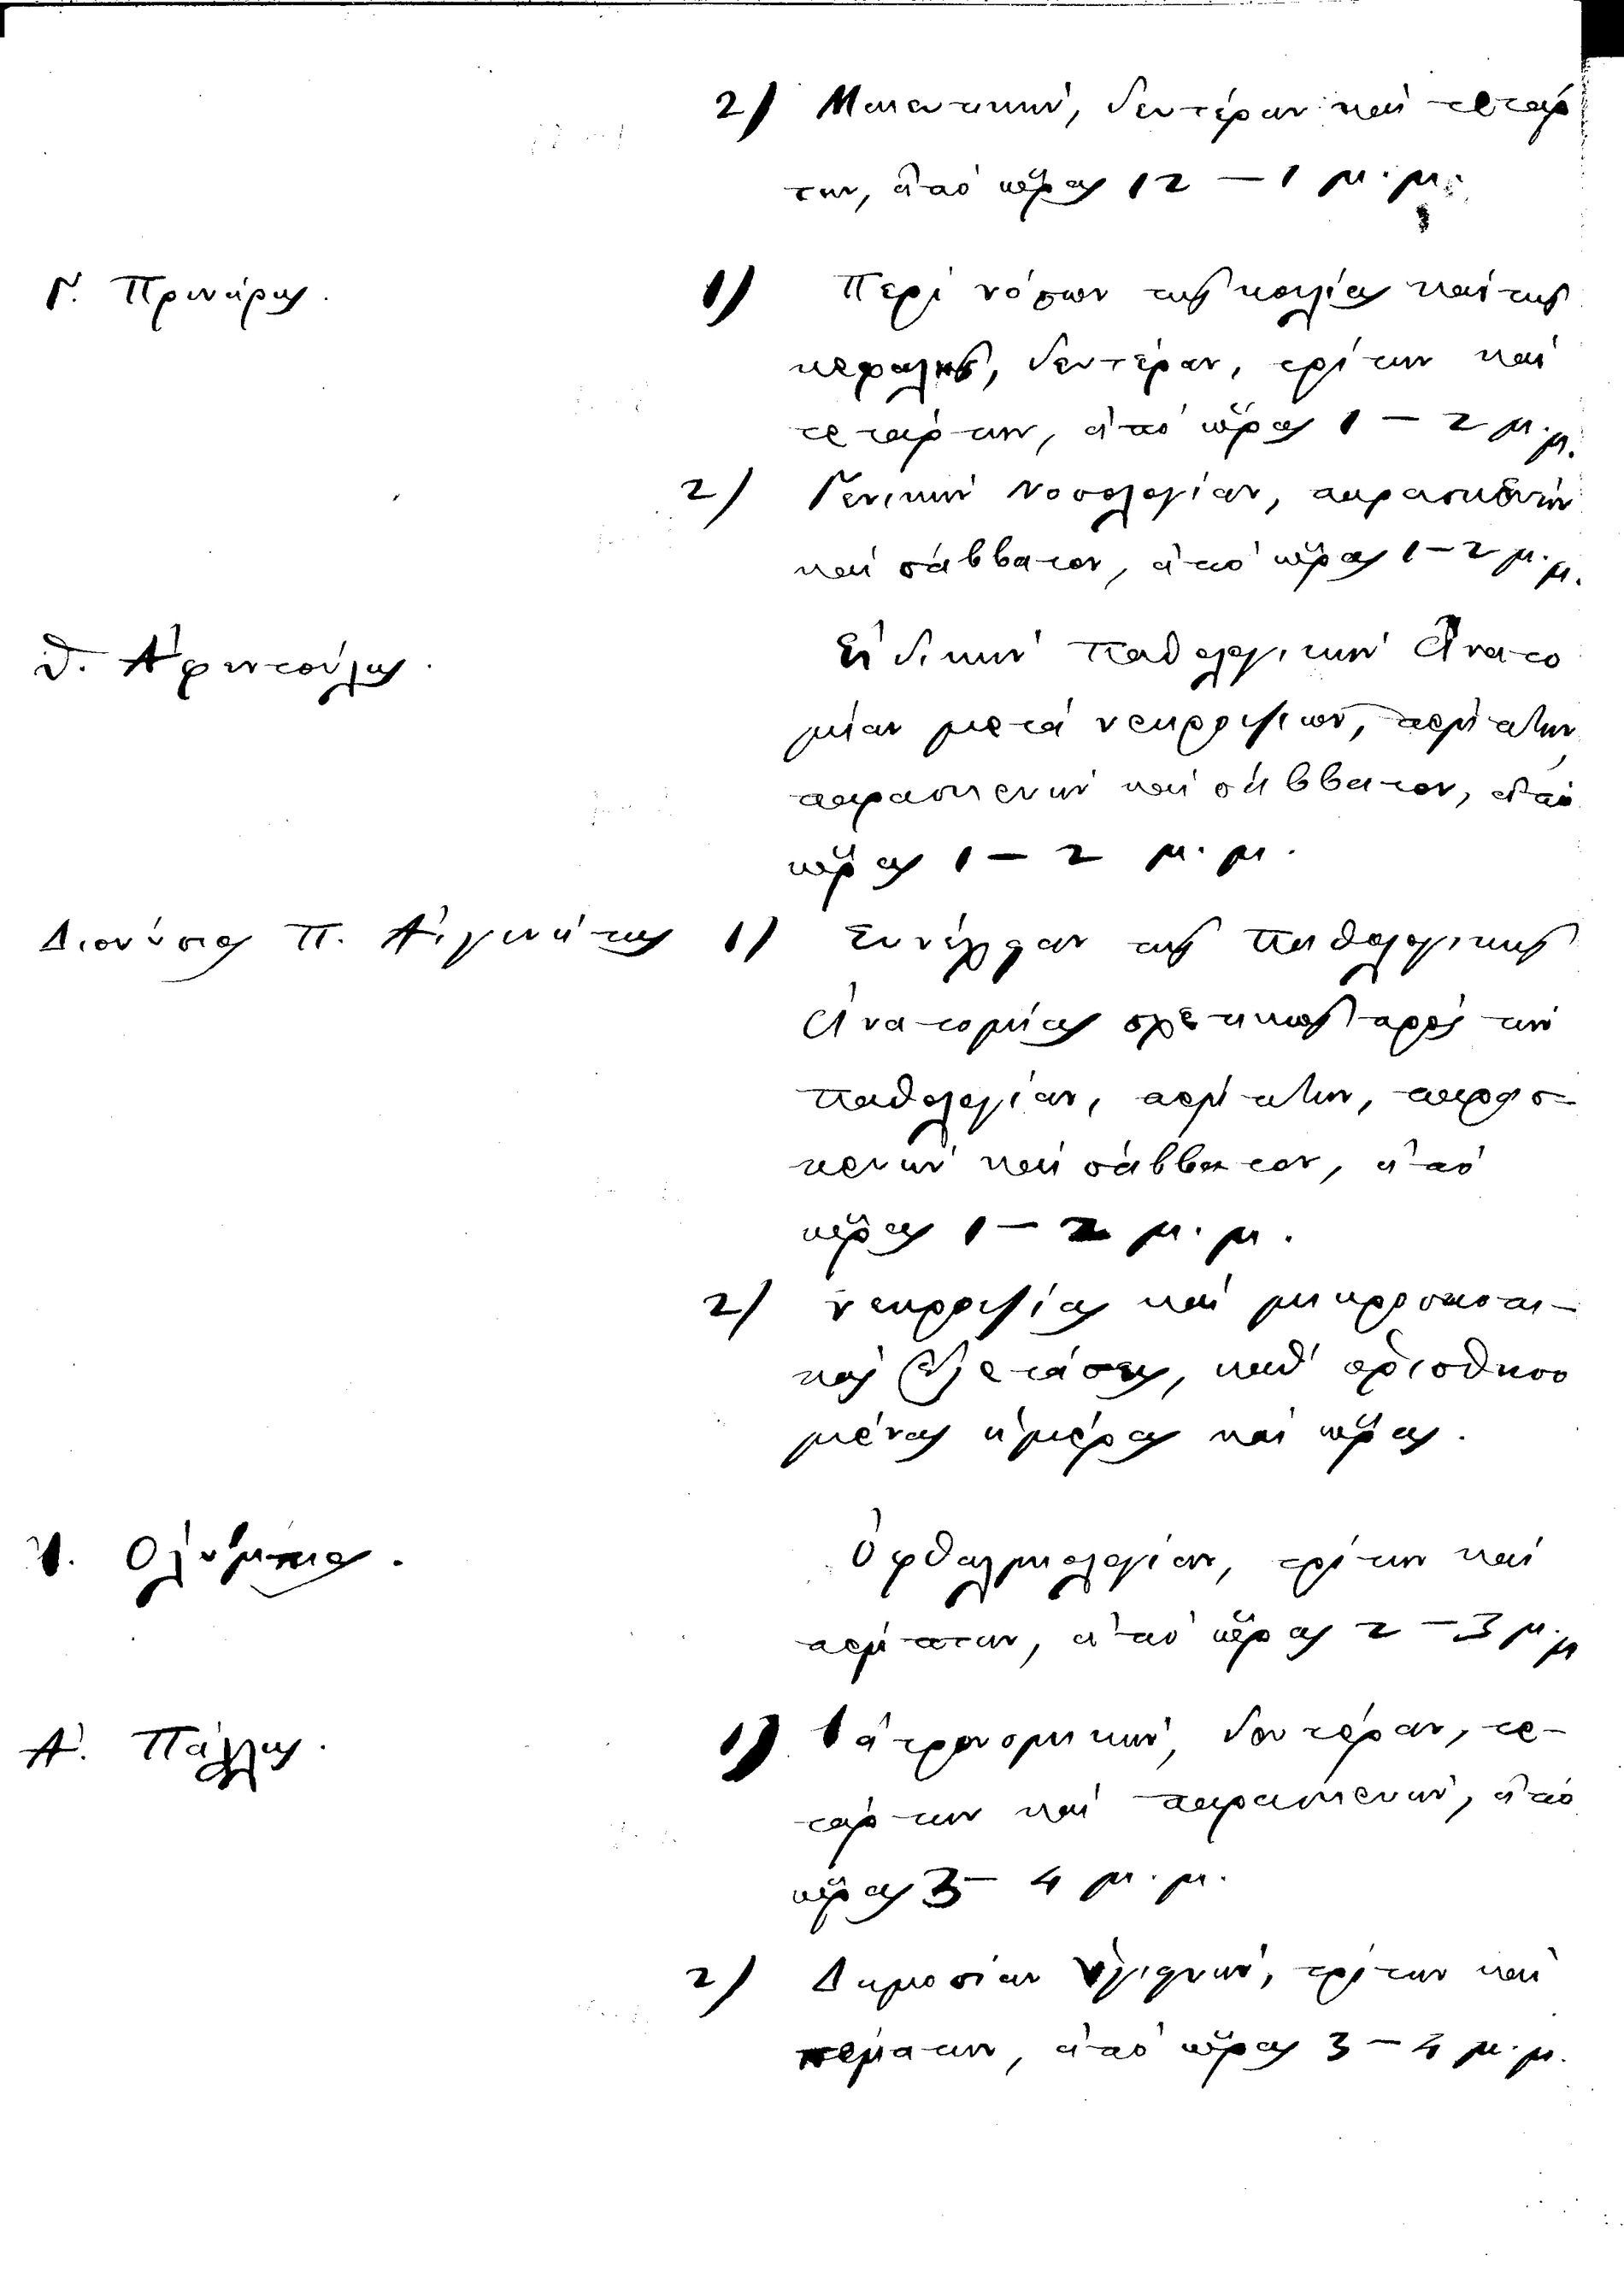 2) Μαιευτικήν, δευτέραν καί τετάρ
την, ἀπό ὥρας 12 – 1 μ.μ.
Γ. Πρινάρης. 1) Περί νόσων τῆς κοιλίας καί τῆς
κεφαλῆς, δευτέραν, τρίτην καί
τετάρτην, ἀπό ὥρας 1 – 2 μ.μ.
2) Γενικήν Νοσολογίαν, παρασκευήν
καί σάββατον, ἀπό ὥρας 1 – 2 μ.μ.
Θ. Ἀφεντούλης. Εἰδικήν Παθολογικήν Ἀνατο
μίαν μετά νεκροψιῶν, πέμπτην,
παρασκευήν καί σάββατον, ἀπό
ὥρας 1 – 2 μ.μ.
Διονύσιος Π. Αἰγινήτης 1) Συνέχειαν τῆς Παθολογικῆς
Ἀνατομίας σχετικῶς πρός τήν
Παθολογίαν, πέμπτην, παρασ–
κευήν καί σάββατον, ἀπό
ὥρας 1 – 2 μ.μ.
2) νεκροψίας καί μικροσκοπι–
κάς ἐξετάσεις, καθ' ὁρισθησο
μένας ἡμέρας καί ὥρας.
Ὀλύμπιος. Ὀφθαλμολογίαν, τρίτην καί
πέμπτην, ἀπό ὥρας 2 – 3 μ.μ
Ἀ. Πάλλης. 1) Ἰατρονομικήν, δευτέραν, τε–
τάρτην καί παρασκευήν, ἀπό
ὥρας 3 – 4 μ.μ.
2) Δημοσίαν ὑγιεινήν, τρίτην καί
πέμπτην, ἀπό ὥρας 3 – 4 μ.μ.